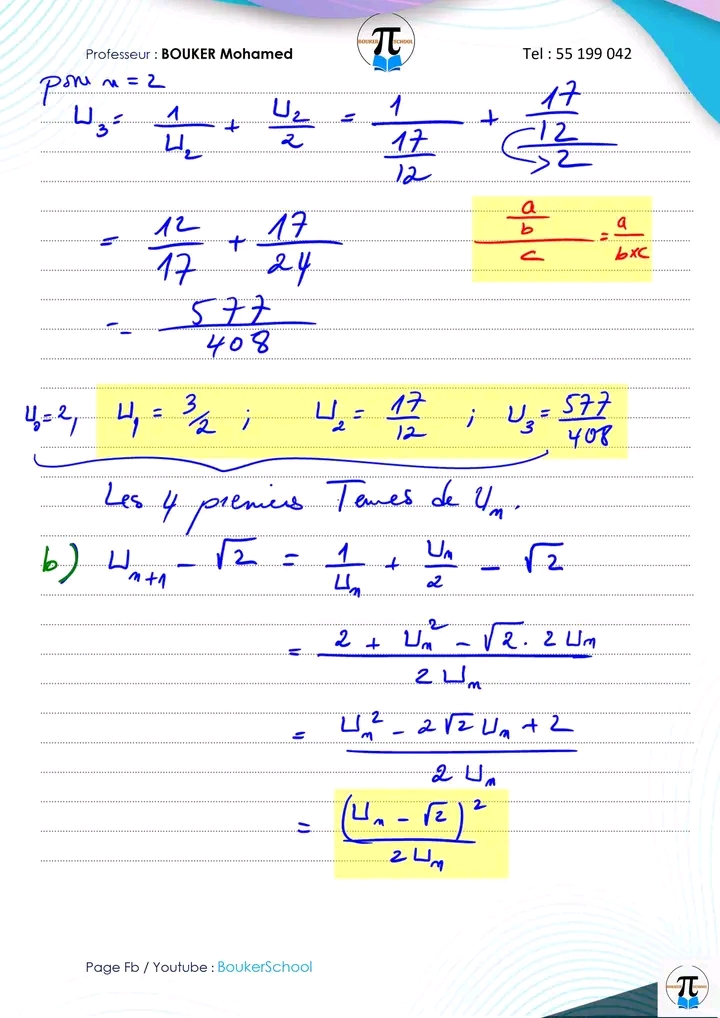 Professeur : BOUKER Mohamed
BOUKER SCHOOL
π
Tel : 55 199 042
pour n = 2
U₃ = 1/U₂ + U₂/2 = 1/(17/12) + (17/12)/2
= 12/17 + 17/24
(a/b)/c = a/(b×c)
= 577/408
U₀ = 2, U₁ = 3/2 ; U₂ = 17/12 ; U₃ = 577/408
Les 4 premiers Termes de Uₙ.
b) Uₙ₊₁ - √2 = 1/Uₙ + Uₙ/2 - √2
= (2 + Uₙ² - √2 . 2Uₙ)/(2Uₙ)
= (Uₙ² - 2√2 Uₙ + 2)/(2Uₙ)
= (Uₙ - √2)²/(2Uₙ)
Page Fb / Youtube : BoukerSchool
π